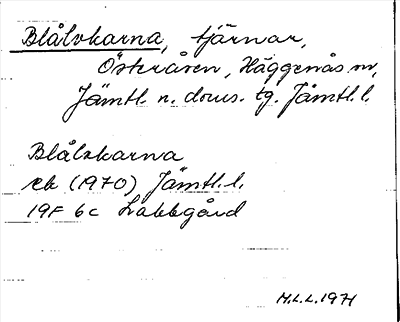 Blålvkarna, tjärnar,
Österåsen, Häggenås sn,
Jämtl. n. doms. tg. Jämtl. l.
Blålvkarna
ek (1970) Jämtl. l.
19F 6c Lakbgård
M.L.L. 1971